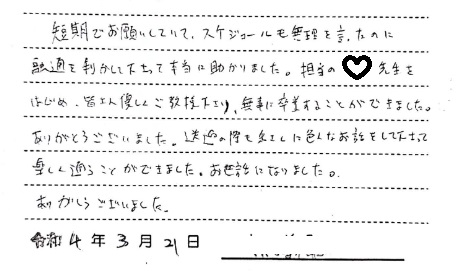 短期でお願いしていて、スケジュールも無理を言ったのに
融通を利かして下さって本当に助かりました。担当の♡先生を
はじめ、皆さん優しくご教授下さり、無事に卒業することができました。
ありがとうございました。送迎の際も気さくに色んなお話をして下さって
楽しく通うことができました。お世話になりました。
ありがとうございました。
令和4年3月21日